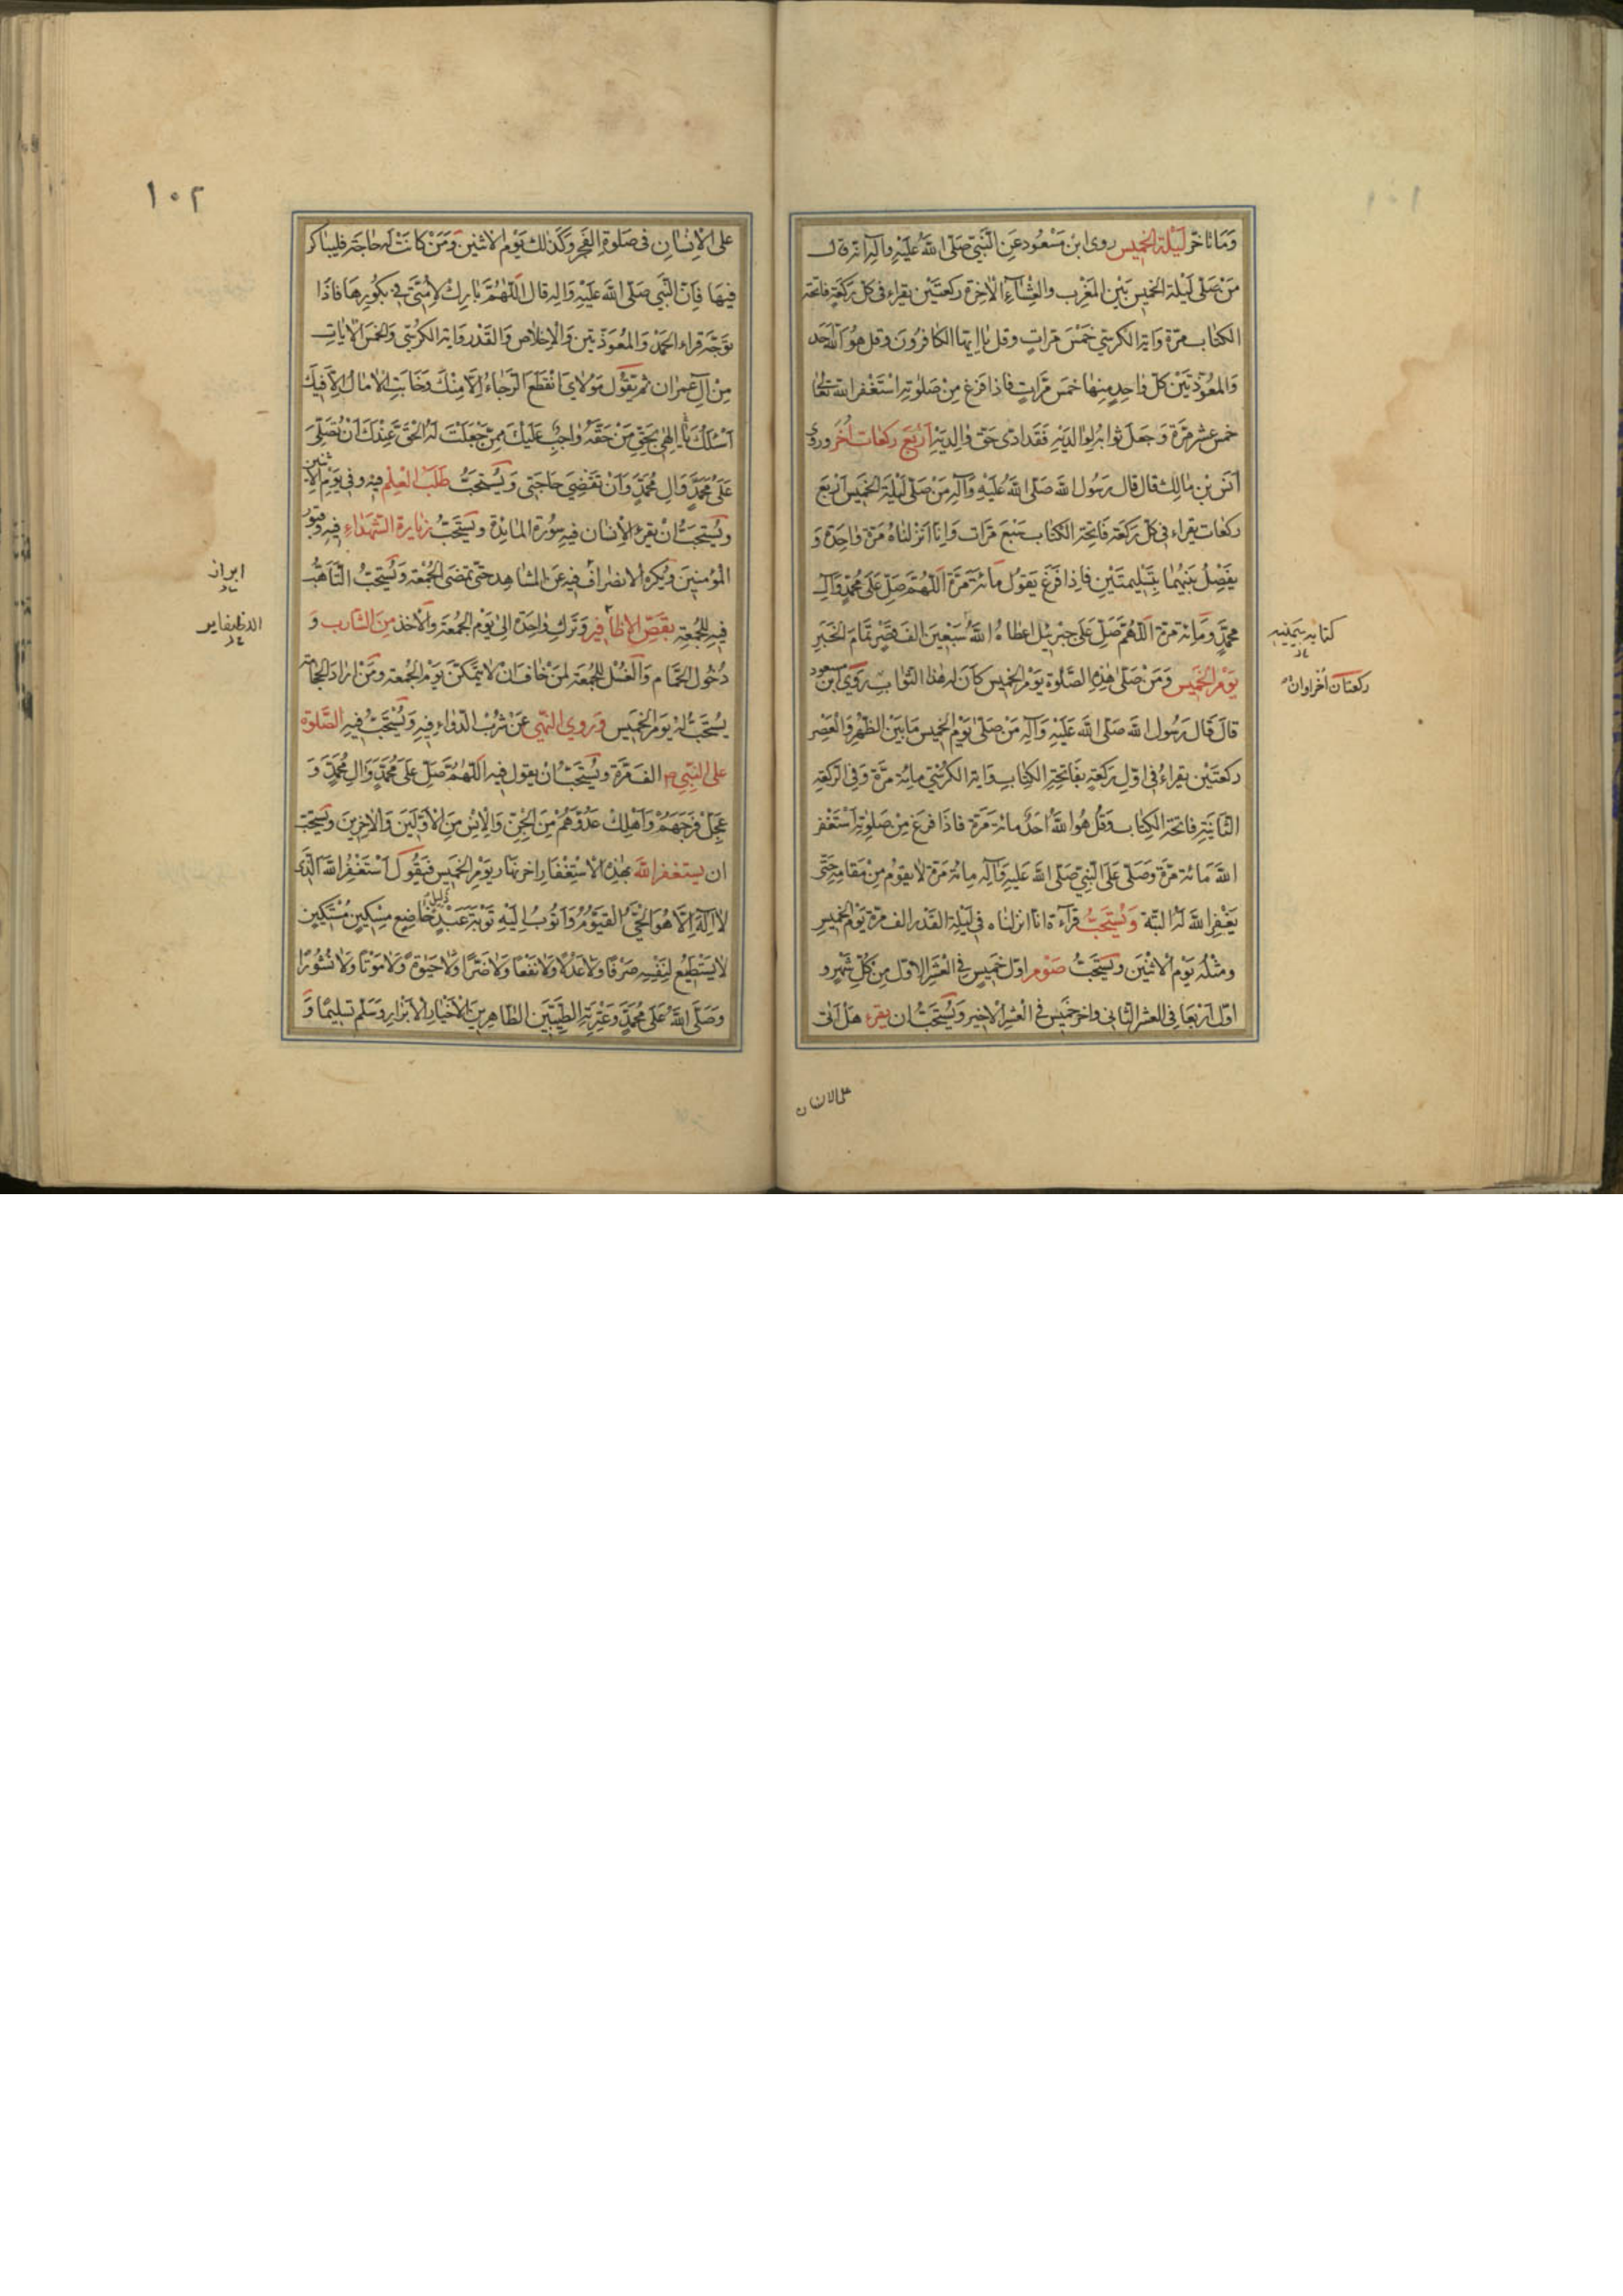 وَمَا تَأخّر لَيْلَة الخَميس روى ابنُ مَسْعُود عَنِ النَّبِيّ صَلّى اللهُ عَلَيْهِ وآلِه انّه قال
مَنْ صَلّى لَيْلة الخَميس بَيْن المَغْرِب والعِشآءِ الآخِرة ركعَتَيْن يقراء فى كلّ رَكعَةٍ فاتحة
الكتاب مرّة وَاية الكرسيّ خَمْسَ مَرّاتٍ وقل يا ايّها الكافرُونَ وقل هُوَ اللهُ اَحَد
وَالمعُوّذتَيْن كلّ واحدٍ منها خمسَ مَرّاتٍ فاذا فرَغ مِنْ صَلوتِه اسْتَغْفر الله تعالى
خمس عشر مَرّة وَجعَلَ ثوابه لوالديْهِ فَقَد ادّى حَقّ والِديْهِ اَربَع ركعات اُخَر وروى
اَنَسُ بْن مالِك قال قال رَسُول الله صَلّى اللهُ عَلَيْهِ وآلِه مَنْ صَلّى لَيْلَة الخَميس اَرْبَع
ركعات يقراء فى كلّ ركعَة فاتحة الكتاب سَبْعَ مَرّات وَانّا اَنزلناهُ مَرّة واحِدَة وَ
يفصِلُ بَيْنهُما بِتَسْليمتَيْن فاذا فَرَغَ يقول مائة مَرّة اَللّهُمَّ صَلِّ عَلى مُحمّدٍ وَآلِ
مُحمّدٍ وَمائة مَرّة اَللّهُمَّ صَلِّ عَلى جبْرئيل اعطاهُ اللهُ سَبْعينَ الف قَصْرٍ تَمامَ الخَبَر
يَوْمُ الخَميس وَمَنْ صَلّى هٰذِهِ الصَّلوة يَوْمَ الخَميس كانَ له هٰذا الثّواب رَوى ابن مسعود
قالَ قالَ رَسُول الله صَلّى الله عَلَيْهِ وآلِه مَنْ صَلّى يَوْم الخَميس مَا بَيْن الظُّهْرِ وَالْعَصْر
ركعتَيْن يقراءُ فى اوّل رَكعَةٍ بفَاتِحَةِ الكِتاب وَاية الكرسيّ مائة مَرّة وَفى الرّكعَة
الثانيَة فاتحة الكِتاب وَقُلْ هُوَ اللهُ اَحَدٌ مائة مَرّة فاذا فرغ مِنْ صَلوتِه اسْتَغْفر
اللهَ مَائة مَرّة وَصَلّى عَلَى النَّبيّ صَلّى الله عَليْهِ وَآلِه مائة مَرّة لا يقومُ مِنْ مَقامِه حَتّى
يَغْفِر اللهُ لَهُ البتّة وَيُسْتَحَبُّ قرآءة انّا انزلناه فى لَيْلَة القَدْر الف مَرّة يَوْم الخَميس
ومثْلُه يَوْم الاثْنَين ويُسْتَحَبُّ صَوْم اوّل خَميس فى الْعَشْرِ الاوّل مِنْ كُلّ شَهْرٍ و
اوّل اَرْبَعَا فى العشر الثّانى واخر خَميس فى العَشْر الاخير وَيُسْتَحَبُّ ان يقرء هَلْ اَتى
كتابه بيمينه
ركعتان اُخراوان
على الانسان
١٠٢
على الْاِنْسانِ فى صَلوة الفَجر وَكَذلك يَوْم الاثنين وَمَنْ كانَتْ له حاجَة فليباكر
فيها فَاِنّ النَّبِيّ صَلّى الله عَلَيْهِ وَالِه قال اَللّهُمَّ بارِكْ لاُمَّتى فى بكُورِها فاذا
توَجّه قراء الحمدَ وَالمعُوّذتين وَالْاِخلاص وَالقَدْر واية الكرسيّ وَالخَمس الايات
مِنْ آلِ عِمران ثم يَقُول مَوْلاى انْقَطَعَ الرَّجاءُ اِلّا مِنْكَ وَخَابَتِ الامالُ اِلّا فيكَ
اَسْئَلُكَ يا اِلٰهى بِحَقّ مَنْ حَقُّهُ واجبٌ عَلَيْكَ مِمّنْ جَعَلْتَ لَهُ الحَقَّ عِنْدَكَ اَنْ تُصَلّى
عَلى مُحَمّدٍ وَالِ مُحَمّدٍ وَاَنْ تَقْضِىَ حَاجَتى وَيُسْتَحَبُّ طَلَبُ الْعِلْمِ فيهِ وفى يَوْمِ الاثنين
ويُسْتَحَبُّ اَنْ يقرء الاِنْسان فيهِ سُورة المائِدَة ويُسْتَحَبُّ زيارة الشّهَداءِ فيهِ وقبُور
الْمُؤمنينَ ويكره الانصراف فيهِ عَنِ المشاهِد حَتّى تمضى الجُمْعَة وَيُسْتَحَبُّ التّأَهُّبُ
فيهِ لِلجُمعَةِ بقَصّ الاِظافير وَتَرك واحِدَة الى يَوْم الجُمعَة وَالاخذ مِنَ الشّارب وَ
دُخُول الحَمّام وَالغُسْل لِلجُمعَة لِمَنْ خاف اَنْ لا يتمكّن يَوْمَ الجُمعَة ومَنْ اراد الحِجامة
يُسْتَحَبُّ لهُ يَومَ الخَميس وَروى النّهى عَنْ شُرْب الدّواءِ فيهِ وَيُسْتَحَبُّ فيهِ الصَّلوة
على النّبيّ ص الف مَرّة ويُسْتَحَبُّ اَنْ يقول فيه اَللّهُمَّ صَلّ عَلى مُحَمّدٍ وَالِ مُحمّدٍ وَ
عَجّلْ فَرَجَهُمْ وَاَهْلِكْ عَدُوَّهُمْ مِنَ الجِنّ وَالْاِنْسِ مِنَ الْاَوّلينَ وَالْاخِرينَ ويُسْتَحَبّ
ان يستغفر الله بهٰذِه الْاِسْتِغْفَارِ اخر نهار يوْم الخَميس فَيَقُول اَسْتَغْفِرُ اللهَ الّذى
لا اِلٰهَ اِلّا هُوَ الْحَىُّ القَيّومُ وَاَتُوبُ اِلَيْهِ تَوْبَة عَبْدٍ ذليل خَاضِعٍ مِسْكينٍ مُسْتَكينٍ
لا يَسْتَطيعُ لِنَفْسِه صَرْفًا وَلا عَدْلًا وَلا نَفْعًا وَلا ضَرًّا وَلا حَيوةً وَلا مَوْتًا وَلا نُشُورًا
وَصَلّى اللهُ عَلى مُحَمّدٍ وَعِتْرَتِهِ الطَّيّبينَ الطّاهِرينَ الْاَخْيارِ الْاَبْرار وَسَلّم تَسْليمًا وَ